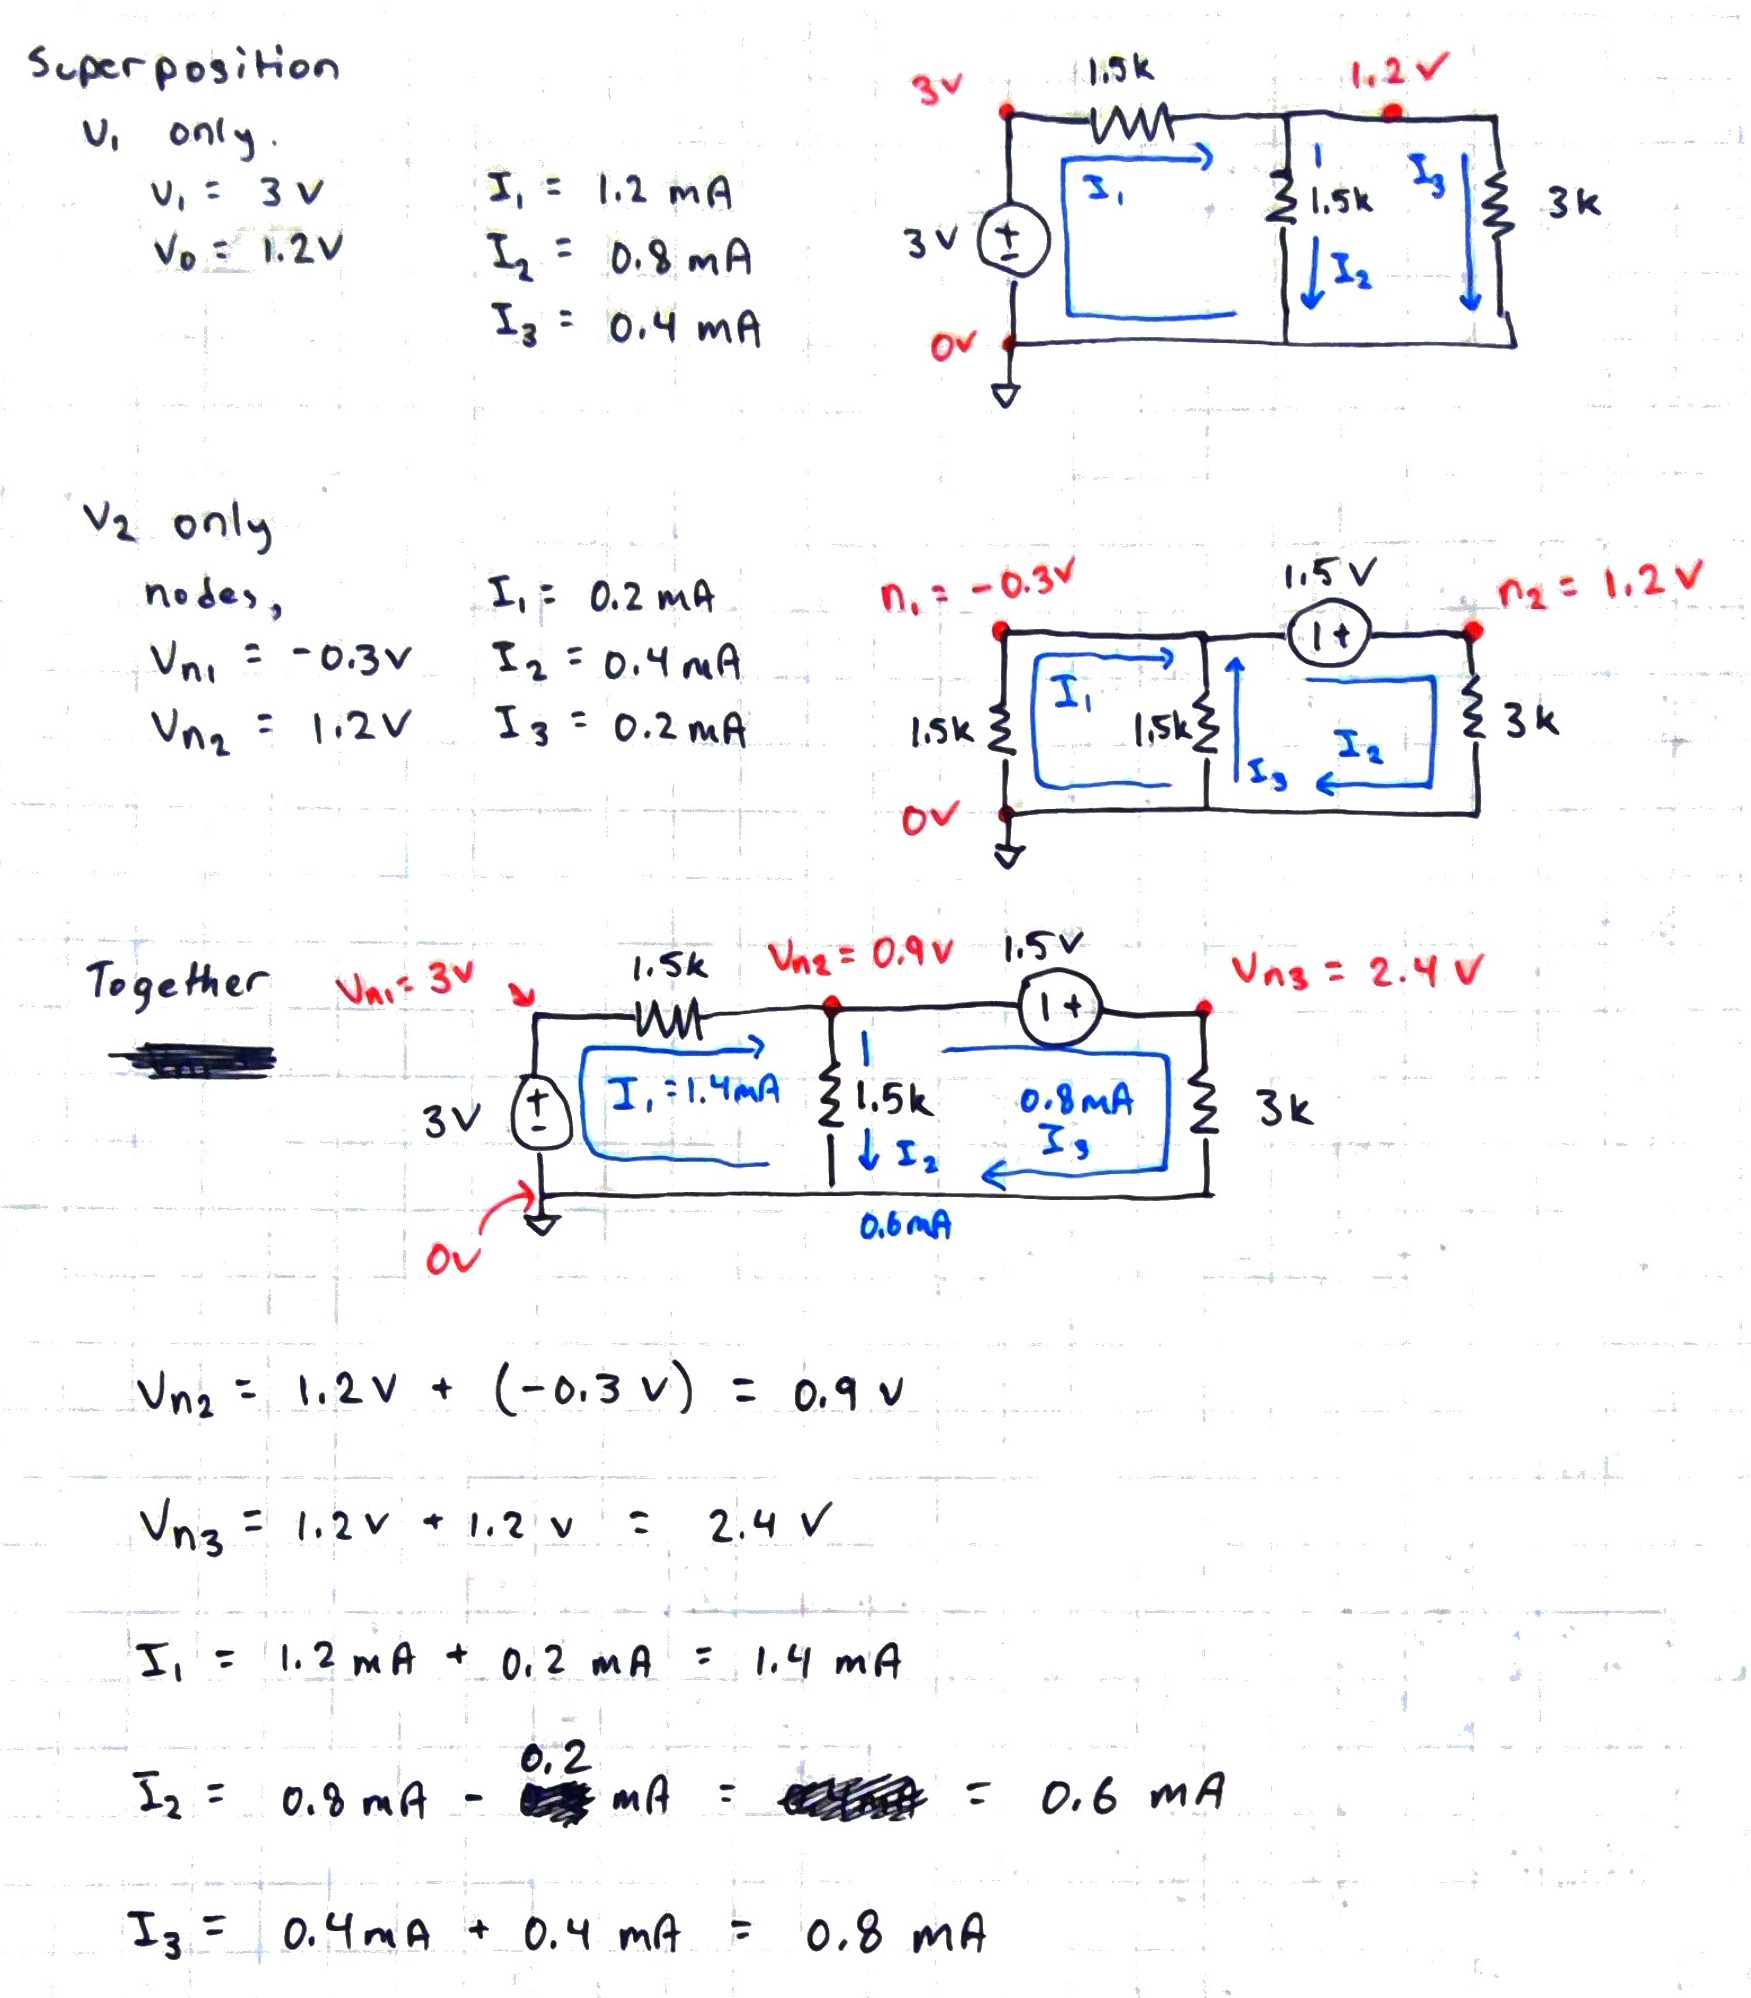 Superposition
V₁ only.
V₁ = 3V
V₀ = 1.2V
I₁ = 1.2 mA
I₂ = 0.8 mA
I₃ = 0.4 mA
3V
1.5k
1.2V
I₁
1.5k
I₃
3k
3V
+
-
I₂
0V
V₂ only
nodes,
Vn₁ = -0.3V
Vn₂ = 1.2V
I₁ = 0.2 mA
I₂ = 0.4 mA
I₃ = 0.2 mA
n₁ = -0.3V
1.5V
n₂ = 1.2V
- +
I₁
1.5k
1.5k
I₂
3k
I₃
0V
Together
Vn₁ = 3V
1.5k
Vn₂ = 0.9V
1.5V
Vn₃ = 2.4V
- +
I₁ = 1.4mA
1.5k
0.8mA
3k
3V
+
-
I₂
I₃
0.6mA
0V
Vn₂ = 1.2V + (-0.3V) = 0.9V
Vn₃ = 1.2V + 1.2V = 2.4V
I₁ = 1.2mA + 0.2 mA = 1.4 mA
0.2
I₂ = 0.8mA - mA = = 0.6 mA
I₃ = 0.4mA + 0.4 mA = 0.8 mA